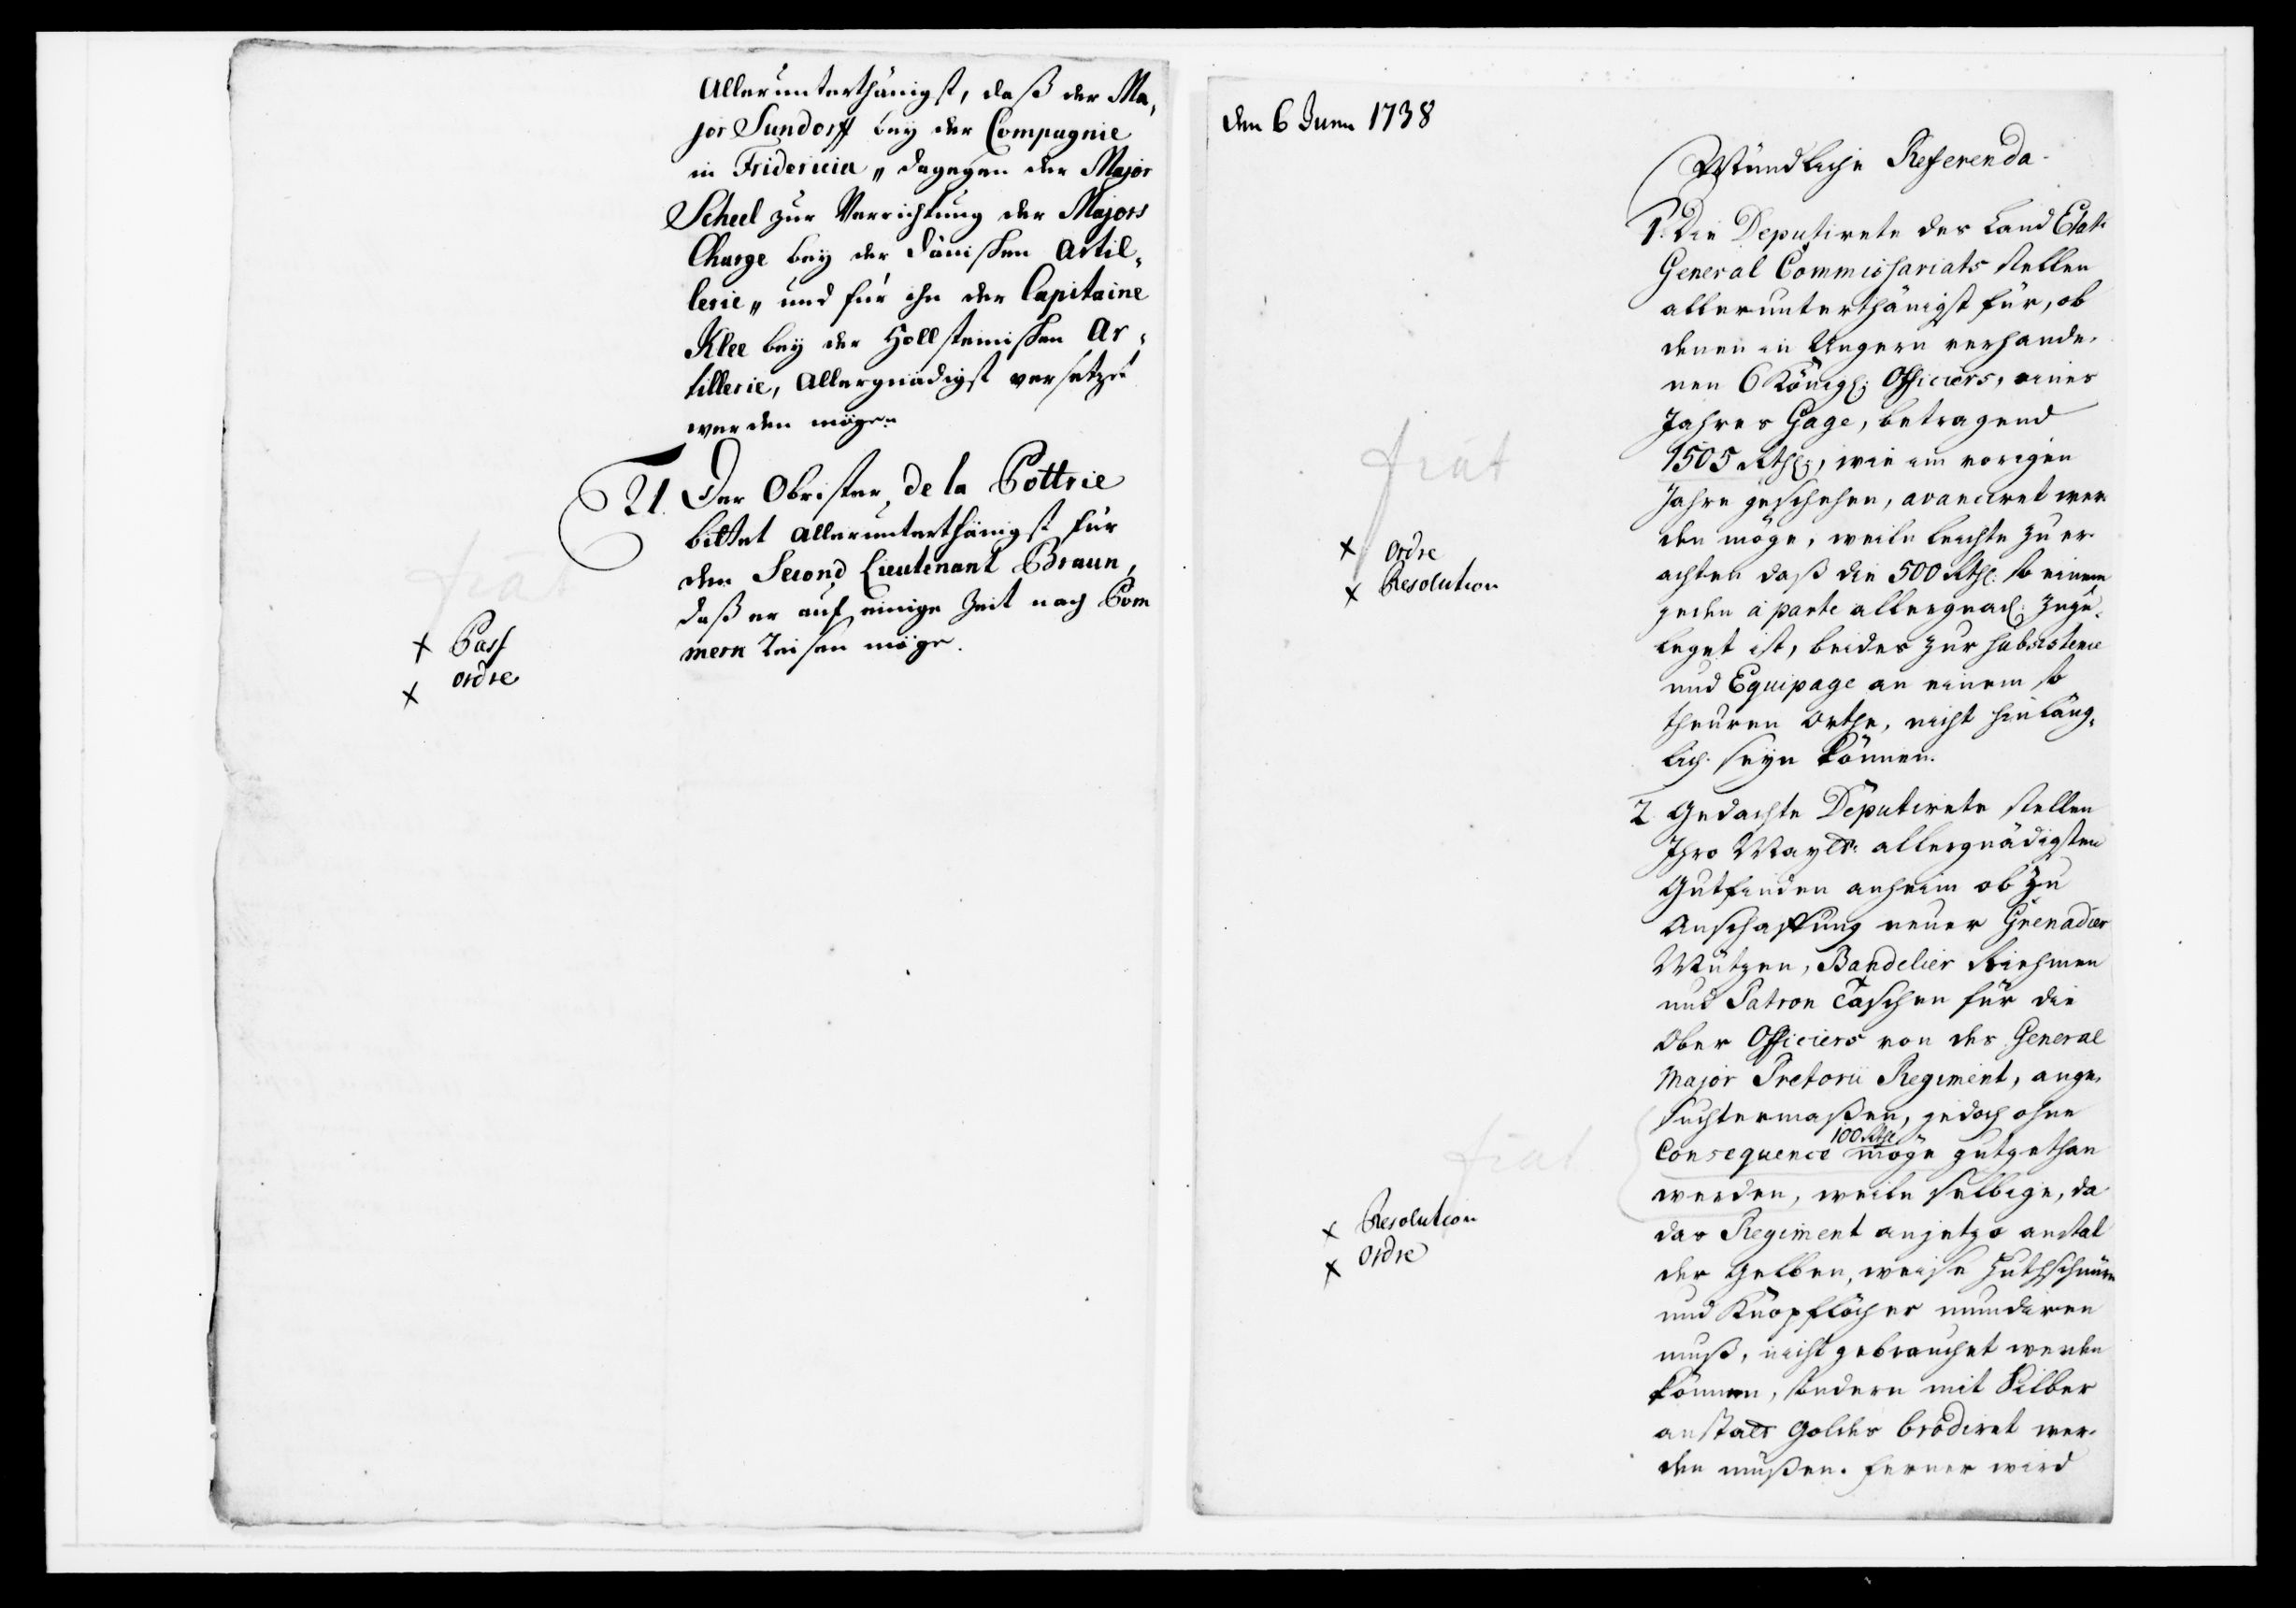 Allerunterthänigst, daß der Ma,
jor Sundorff bey der Compagnie
in Fridericia „ dagegen der Major
Scheel zur Verrichtung der Majors
Charge bey der Dänischen Artil,
lerie „ und für ihn der Capitaine
Klee bey der Hollsteinischen Ar,
tillerie, Allergnädigst versetzet
werden mögen
21. Der Obrister de la Pottrie
bittet Allerunterthänigst für
den Second Lieutenant Braun,
daß er auf einige Zeit nach Pom
mern Reisen möge.
fiat
x Pass
x ordre
den 6 Juni 1738
Mündliche Referenda.
1. Die Deputirete des Land Etats
General Commissariats stellen
allerunterthänigst für, ob
denen in Ungern verhande,
nen 6 Königl: Officiers, eines
Jahres Gage, betragend
1505 Rthl:, wie im vorigen
Jahre geschehen, avanciret wer
den möge, weiln leichte zu er,
achten daß die 500 Rthl: so einem
jeden a parte allergnäd: zuge,
leget ist, beides zur subsistence
und Equipage an einem so
theuren Orthe, nicht hinläng,
lich seyn können.
fiat
x ordre
x Resolution
2. Gedachte Deputirete stellen
Ihro Mayts: allergnädigsten
Gutfinden anheim ob zu
Anschaffung neuer Grenadier
Mützen, Bandelier Riehmen
und Patron Taschen für die
Ober Officiers von des General
Major Pretorii Regiment, ange,
suchtermaßen, jedoch ohne
100 Rthl
Consequence möge gutgethan
werden, weiln selbige, da
das Regiment anjetzo anstat
der Gelben, weiße Huthschnüre
und Knopflöcher mundiren
muß, nicht gebrauchet werden
können, sondern mit Silber
anstatt Goldes brodiret wer,
den mußen. Ferner wird
fiat
x Resolution
x ordre